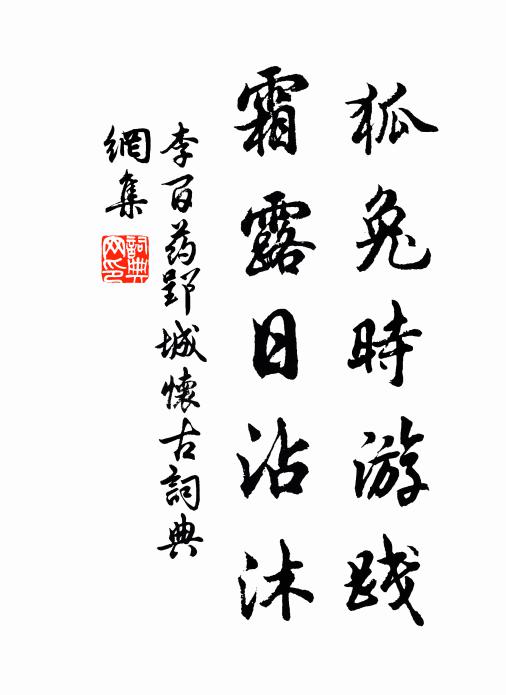 狐兔時游践
霜露日沾沐
李百药郢城懷古詞典
網集
詞典
网印